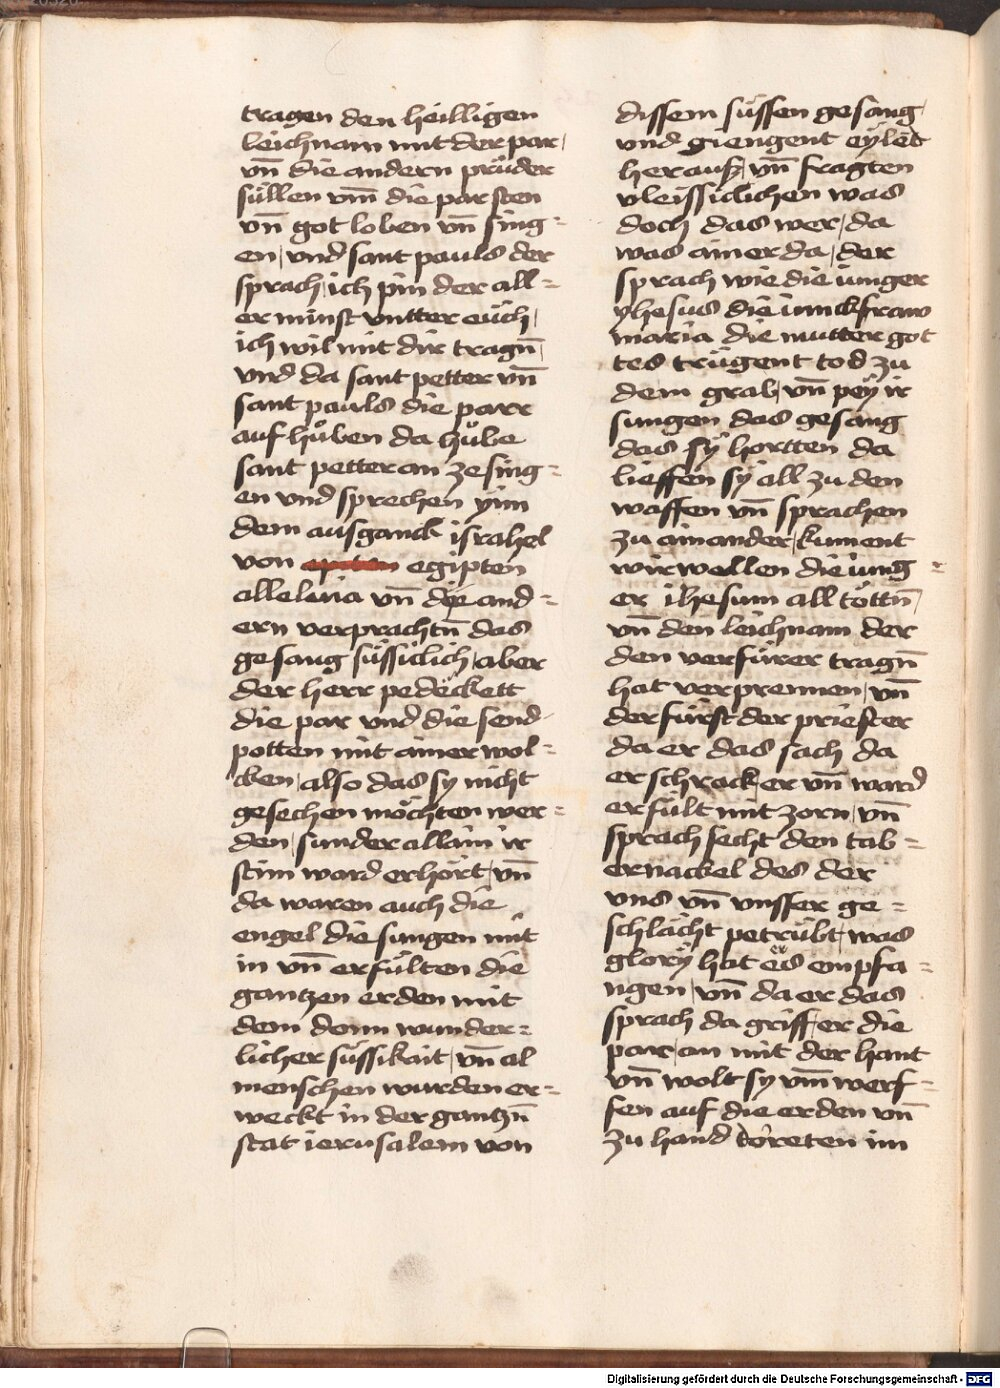 tragen den heilligen
leichnam mit der par /
vn̄ die andern prüder
süllen vm̄ die par sten
vn̄ got loben vn̄ sing=
en / vnd sant pauls der
sprach / ich pin der all=
er minst vntter euch /
ich wil mit dir tragn̄ /
vnd da sant petter vn̄
sant pauls die parr
auf hůben da hůbe
sant petter an ze sing=
en vnd sprechen ynn
dem ausganck israhel
von egipten
alleluia vn̄ die and=
ern verprachtn̄ das
gesang süssiclich / aber
der herr pedeckett
die par vnd die send
potten mit ainer wol=
cken / also das sy nicht
gesechen möchten wer=
den / sunder allain ir
stim ward erhört / vn̄
da waren auch die
engel die sungen mit
in vn̄ erfülten die
gantzen erden mit
dem donn wunder=
licher süssikait / vn̄ al
menschen wurden er=
weckt in der gantzn̄
stat ierusalem von
dissem süssen gesang /
vnd giengent eylēt
herauß / vn̄ fragten
vleissiclichen was
doch das wer / da
was ainer da / der
sprach wie die iunger
yhesus die iunckfraw
maria die mutter got
tes trügent tod zu
dem grab / vn̄ pey ir
sungen das gesang
das sÿ hortten da
lieffen sÿ all zu den
waffen vn̄ sprachen
zu ainander / kument
wir wellen die iung=
er ihesum all töttn̄ /
vn̄ den leichnam der
den verfürer tragn̄
hat verprennen / vn̄
der fürst der priester
da er das sach da
erschrack er vn̄ ward
erfült mit zorn / vn̄
sprach secht den tab=
ernackel des der
vns vn̄ vnsser ge=
schlächt petrübt / was
glorÿ hat es empfa=
ngen / vn̄ da er das
sprach da griff er die
par / an mit der hant
vn̄ wolt sy vm̄ werf=
fen auf die erden vn̄
zu hand doreten im
Digitalisierung gefördert durch die Deutsche Forschungsgemeinschaft - DFG